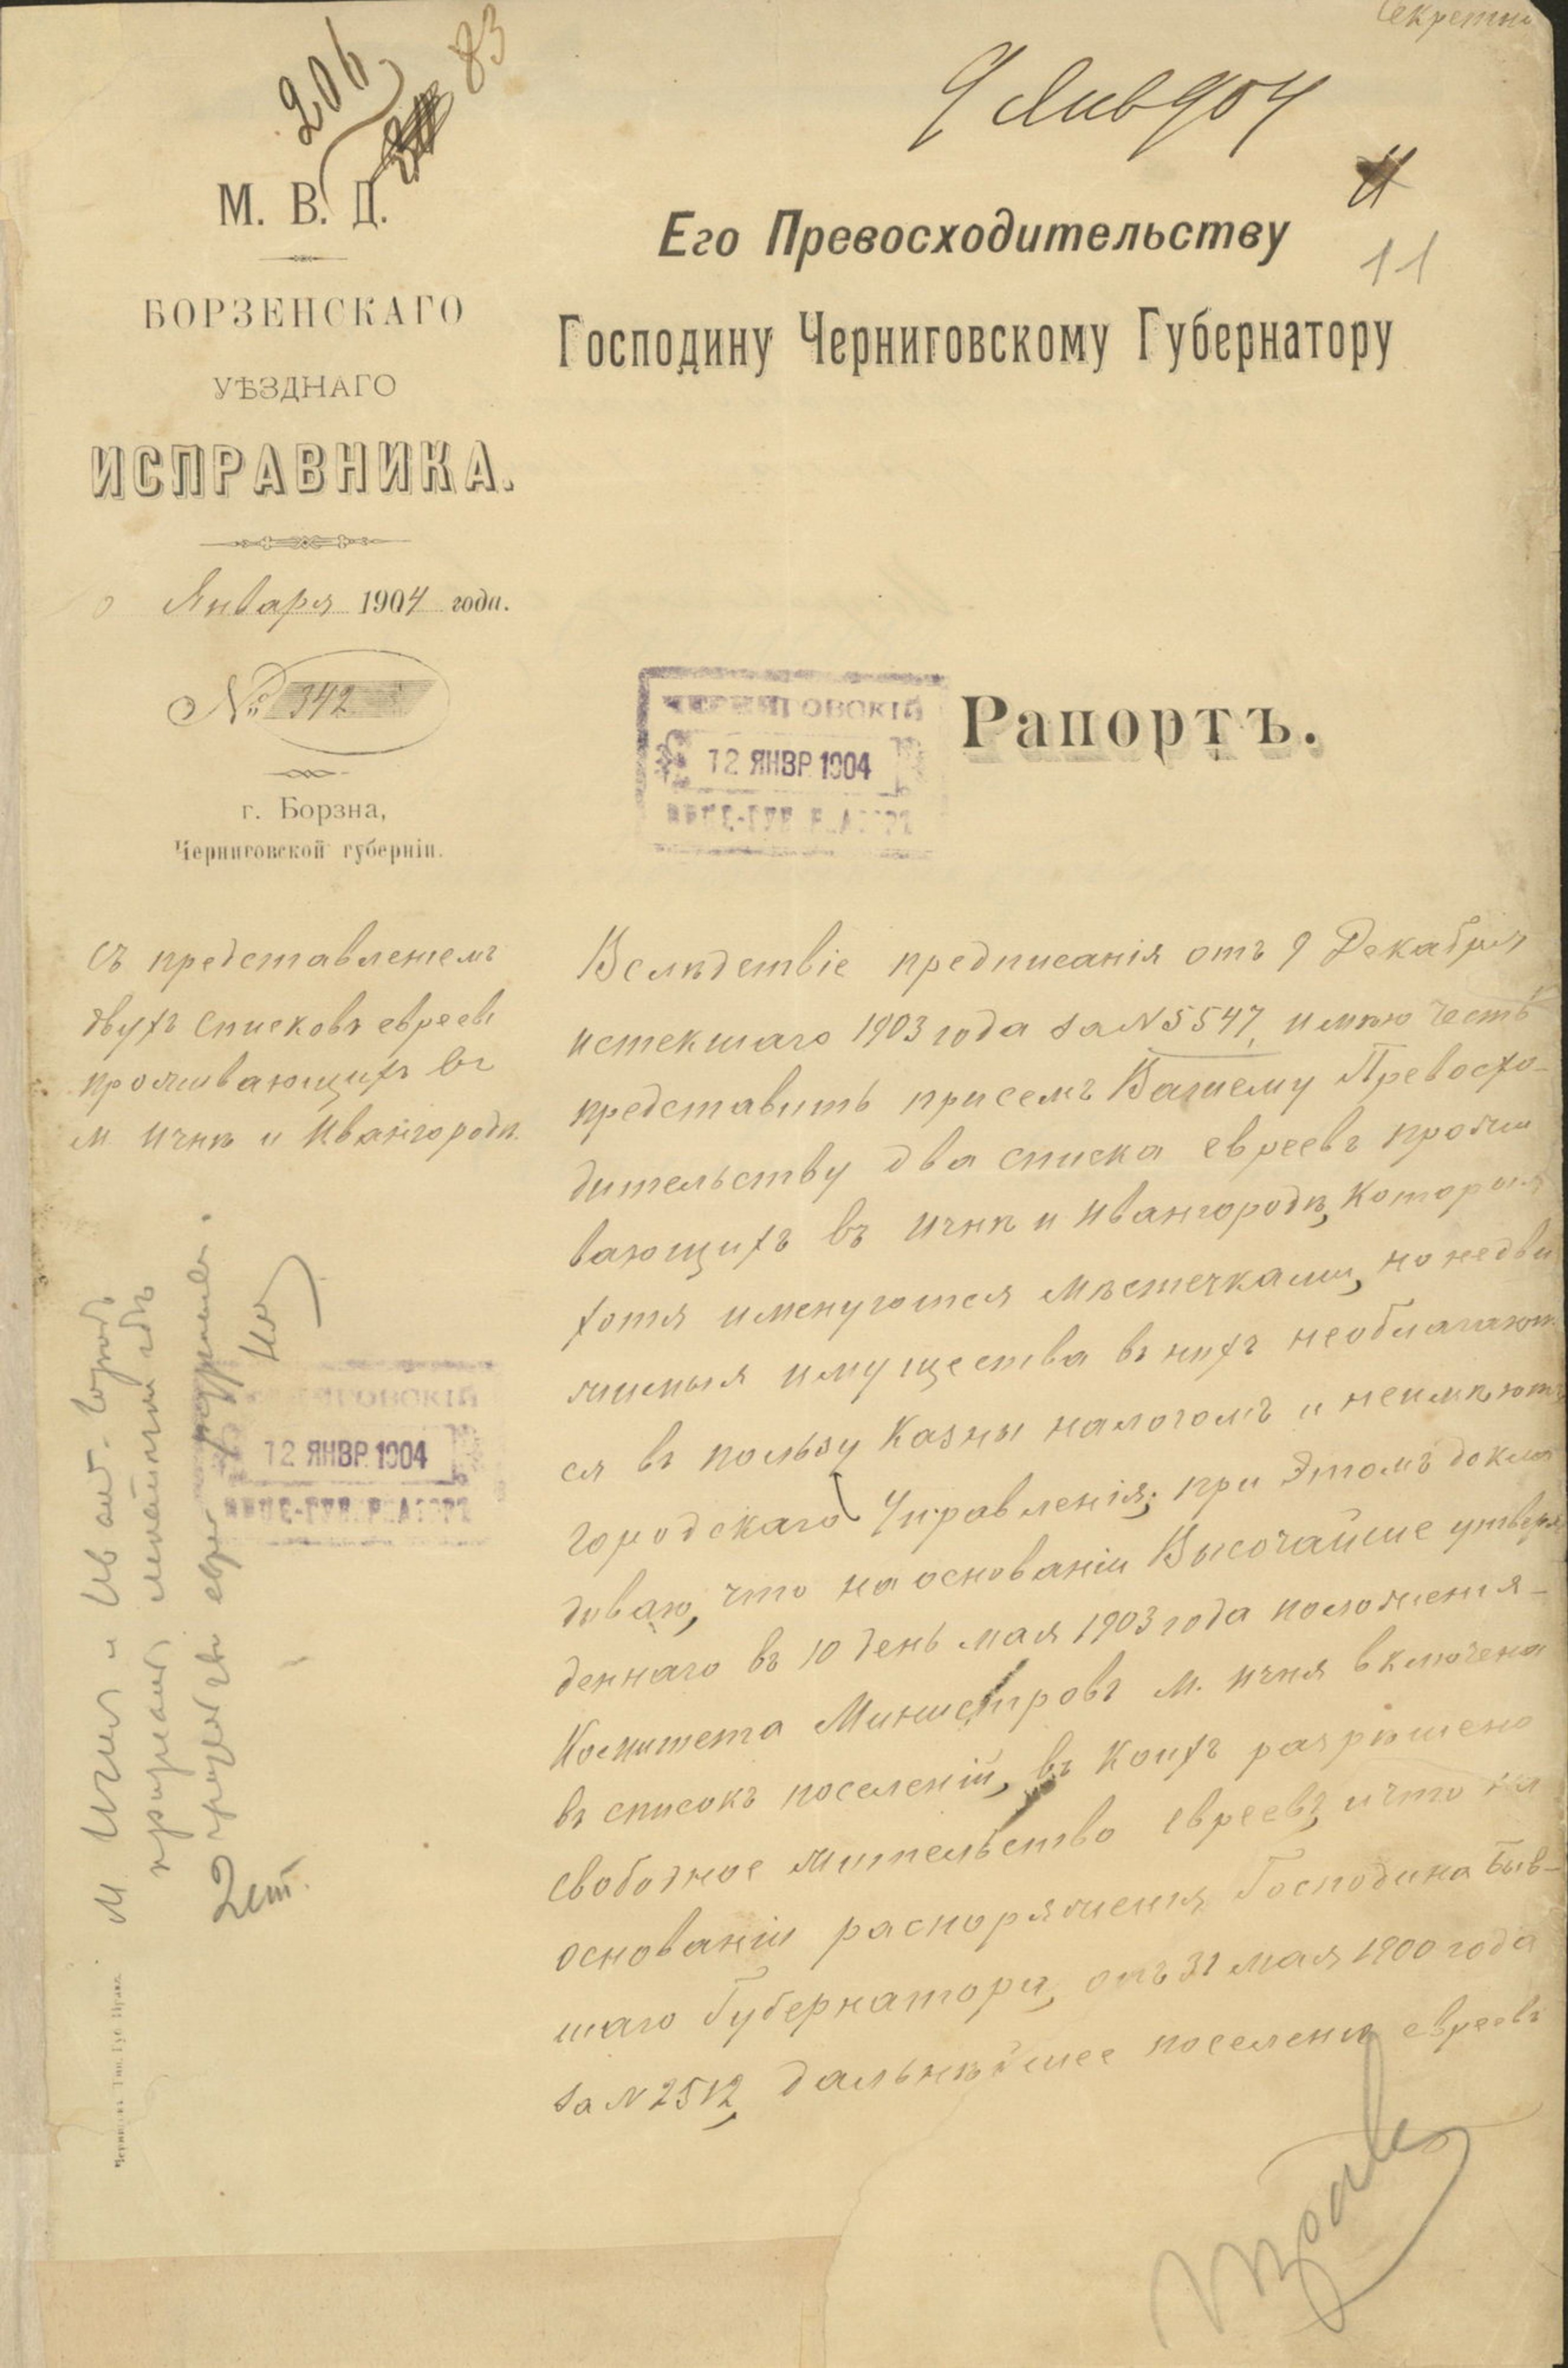 Секретно
206
83
9 Янв 904
М. В. Д.
11
БОРЗЕНСКАГО
УѢЗДНАГО
ИСПРАВНИКА.
Января 1904 года.
№ 342
г. Борзна,
Черниговской губерніи.
Его Превосходительству
Господину Черниговскому Губернатору
ЧЕРНИГОВСКІЙ
12 ЯНВР 1904
ВИЦЕ-ГУБЕРНАТОРЪ
Рапортъ.
Съ представленіемъ
двухъ списковъ евреевъ
проживающихъ въ
м. Ичнѣ и Ивангородѣ.
Вслѣдствіе предписанія отъ 9 Декабря
истекшаго 1903 года за N 5547, имѣю честь
представить присемъ Вашему Превосхо-
дительству два списка евреевъ прожи
вающихъ въ Ичнѣ и Ивангородѣ, которыя
хотя именуются мѣстечками, но недви
жимыя имущества въ нихъ необлагают
ся въ пользу казны налогомъ и неимѣютъ
городскаго Управленія; при этомъ докла
дываю, что на основаніи Высочайше утверж
деннаго въ 10 день мая 1903 года положенія
Комитета Министровъ м. Ичня включена
въ списокъ поселеній, въ коихъ разрѣшено
свободное жительство евреевъ, и что на
основаніи распоряженія Господина Быв-
шаго Губернатора, отъ 31 мая 1900 года
за N 2512, дальнѣйшее поселеніе евреевъ
М Ичня и Иван-город
2 ст.
ЧЕРНИГОВСКІЙ
12 ЯНВР 1904
ВИЦЕ-ГУБЕРНАТОРЪ
Черниговъ. Тип. Губ. Прав.